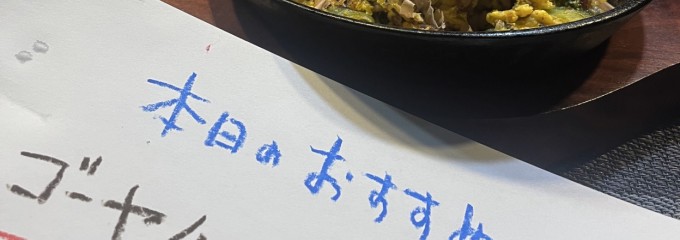 本日のおすすめ
ゴーヤ